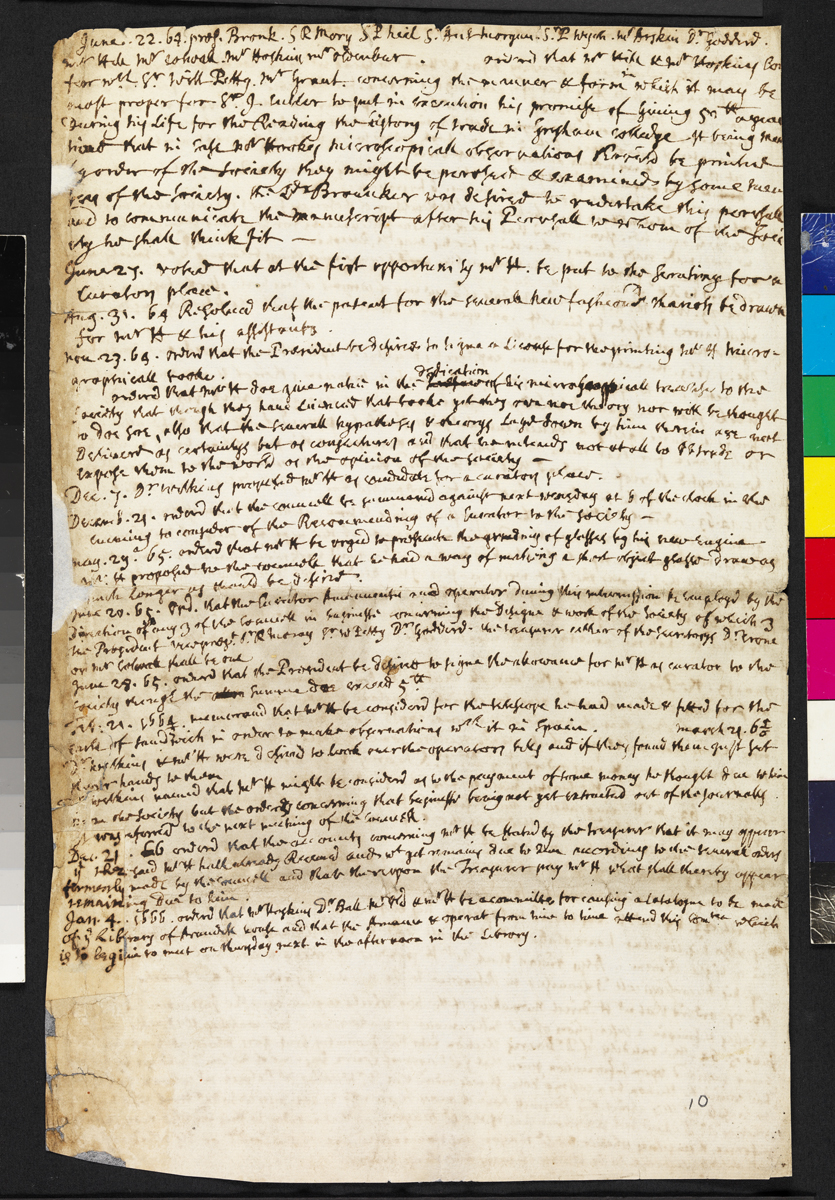 June. 22. 64. pres. Bronk. S R Mory S P Neil Sr. Ant morgan. Sr. P Wych. mr Arskin Dr. Goddard.
mr Hill mr Colwall mr Hoskins mr oldenbur. orderd that mr Hill & mr Hoskins Con
fer wth Sr Will Petty. mr Graunt. concerning the manner & form in which it may be
most proper for Sr. J. Cutler to put in execution his promise of Giving 50 ll a year
During his Life for the Reading the history of trade in Gresham colledge. It being men
tiond that in Case mr Hookes microscopicall observations should be printed
by order of the Society they might be perused & examined by some mem
bers of the Society. the Ld. Brouncker was desired to undertake this perusall
and to communicate the manuscript after his Perusall to whom of the Soci
ety he shall think fit —
June 27. voted that at the first opportunity mr H. be put to the scrutiny for a
Curators place.
Aug. 31. 64 Resolved that the patent for the severall new fashiond chariots be drawn
for mr H & his assistants.
nov. 23. 64. orderd that the President be desired to signe a License for the printing mr H micro-
graphicall booke.
orderd that mr H doe give notice in the dedication of his microscopicall treatise to the
Society that though they have Licenced that booke yet they own noe theory nor will be thought
to doe soe, also that the severall hypotheses & theorys Layd down by him therin are not
Deliverd as certaintys but as conjectures and that he intends not at all to obtrude or
expose them to the world as the opinion of the Society —
Dec. 7. Dr wilkins proposed mr H as candidate for a curators place.
Decemb. 21. orderd that the councell be summond against next wensday at 3 of the clock in the
evening to consider of the Recommending of a Curator to the Society —
may. 29. 65. orderd that mr H be urged to prosecute the grinding of glasses by his new Engine
mr. H proposed to the councell that he had a way of making a short object glasse draw as
much longer as should be desired.
June 28. 65. Ord. that the Curator Amanuensis and operator during this intermission be employd by the
direction of any 3 of the Councell in businesse concerning the designe & work of the Society of which 3
the President vicepres. Sr. R moray Sr W Petty Dr. Goddard. the treasurer either of the Secretarys Dr. Crone
or mr Colwall shall be one
June 28. 65. orderd that the President be desired to signe the allowance for mr H as curator to the
Society though the summe doe exceed 5 ll
Feb. 21. 1665/6. memorand that mr H be considerd for the telescope he had made & fitted for the
Earle of Sandwich in order to make observations wth it in Spain. march 21. 6 5/6
Dr. wilkins & mr H were desired to look over the operators bills and if they found them just set
their hands to them
Dr wilkins moved that mr H might be considerd as to the payment of some money he thought due to him
from the Society but the orders concerning that businesse being not yet extracted out of the Journalls
it was referred to the next meeting of the councell.
Dec. 21. 66 orderd that the accounts concerning mr H be stated by the treasurer that it may appear
what the said mr H hath already Received and wt yet remains due to him according to the severall orders
formerly made by the councell and that therupon the Treasurer pay mr H what shall thereby appear
remaining due to him.
Jan. 4. 1666. orderd that mr Hoskins Dr. Ball mr Hill & mr H be a committee for causing a Catalogue to be made
of ye Library of Arundell house and that the Amanu & operat from time to time attend this Comtee which
is to begin to meet on thursday next in the afternoon in the Library.
10